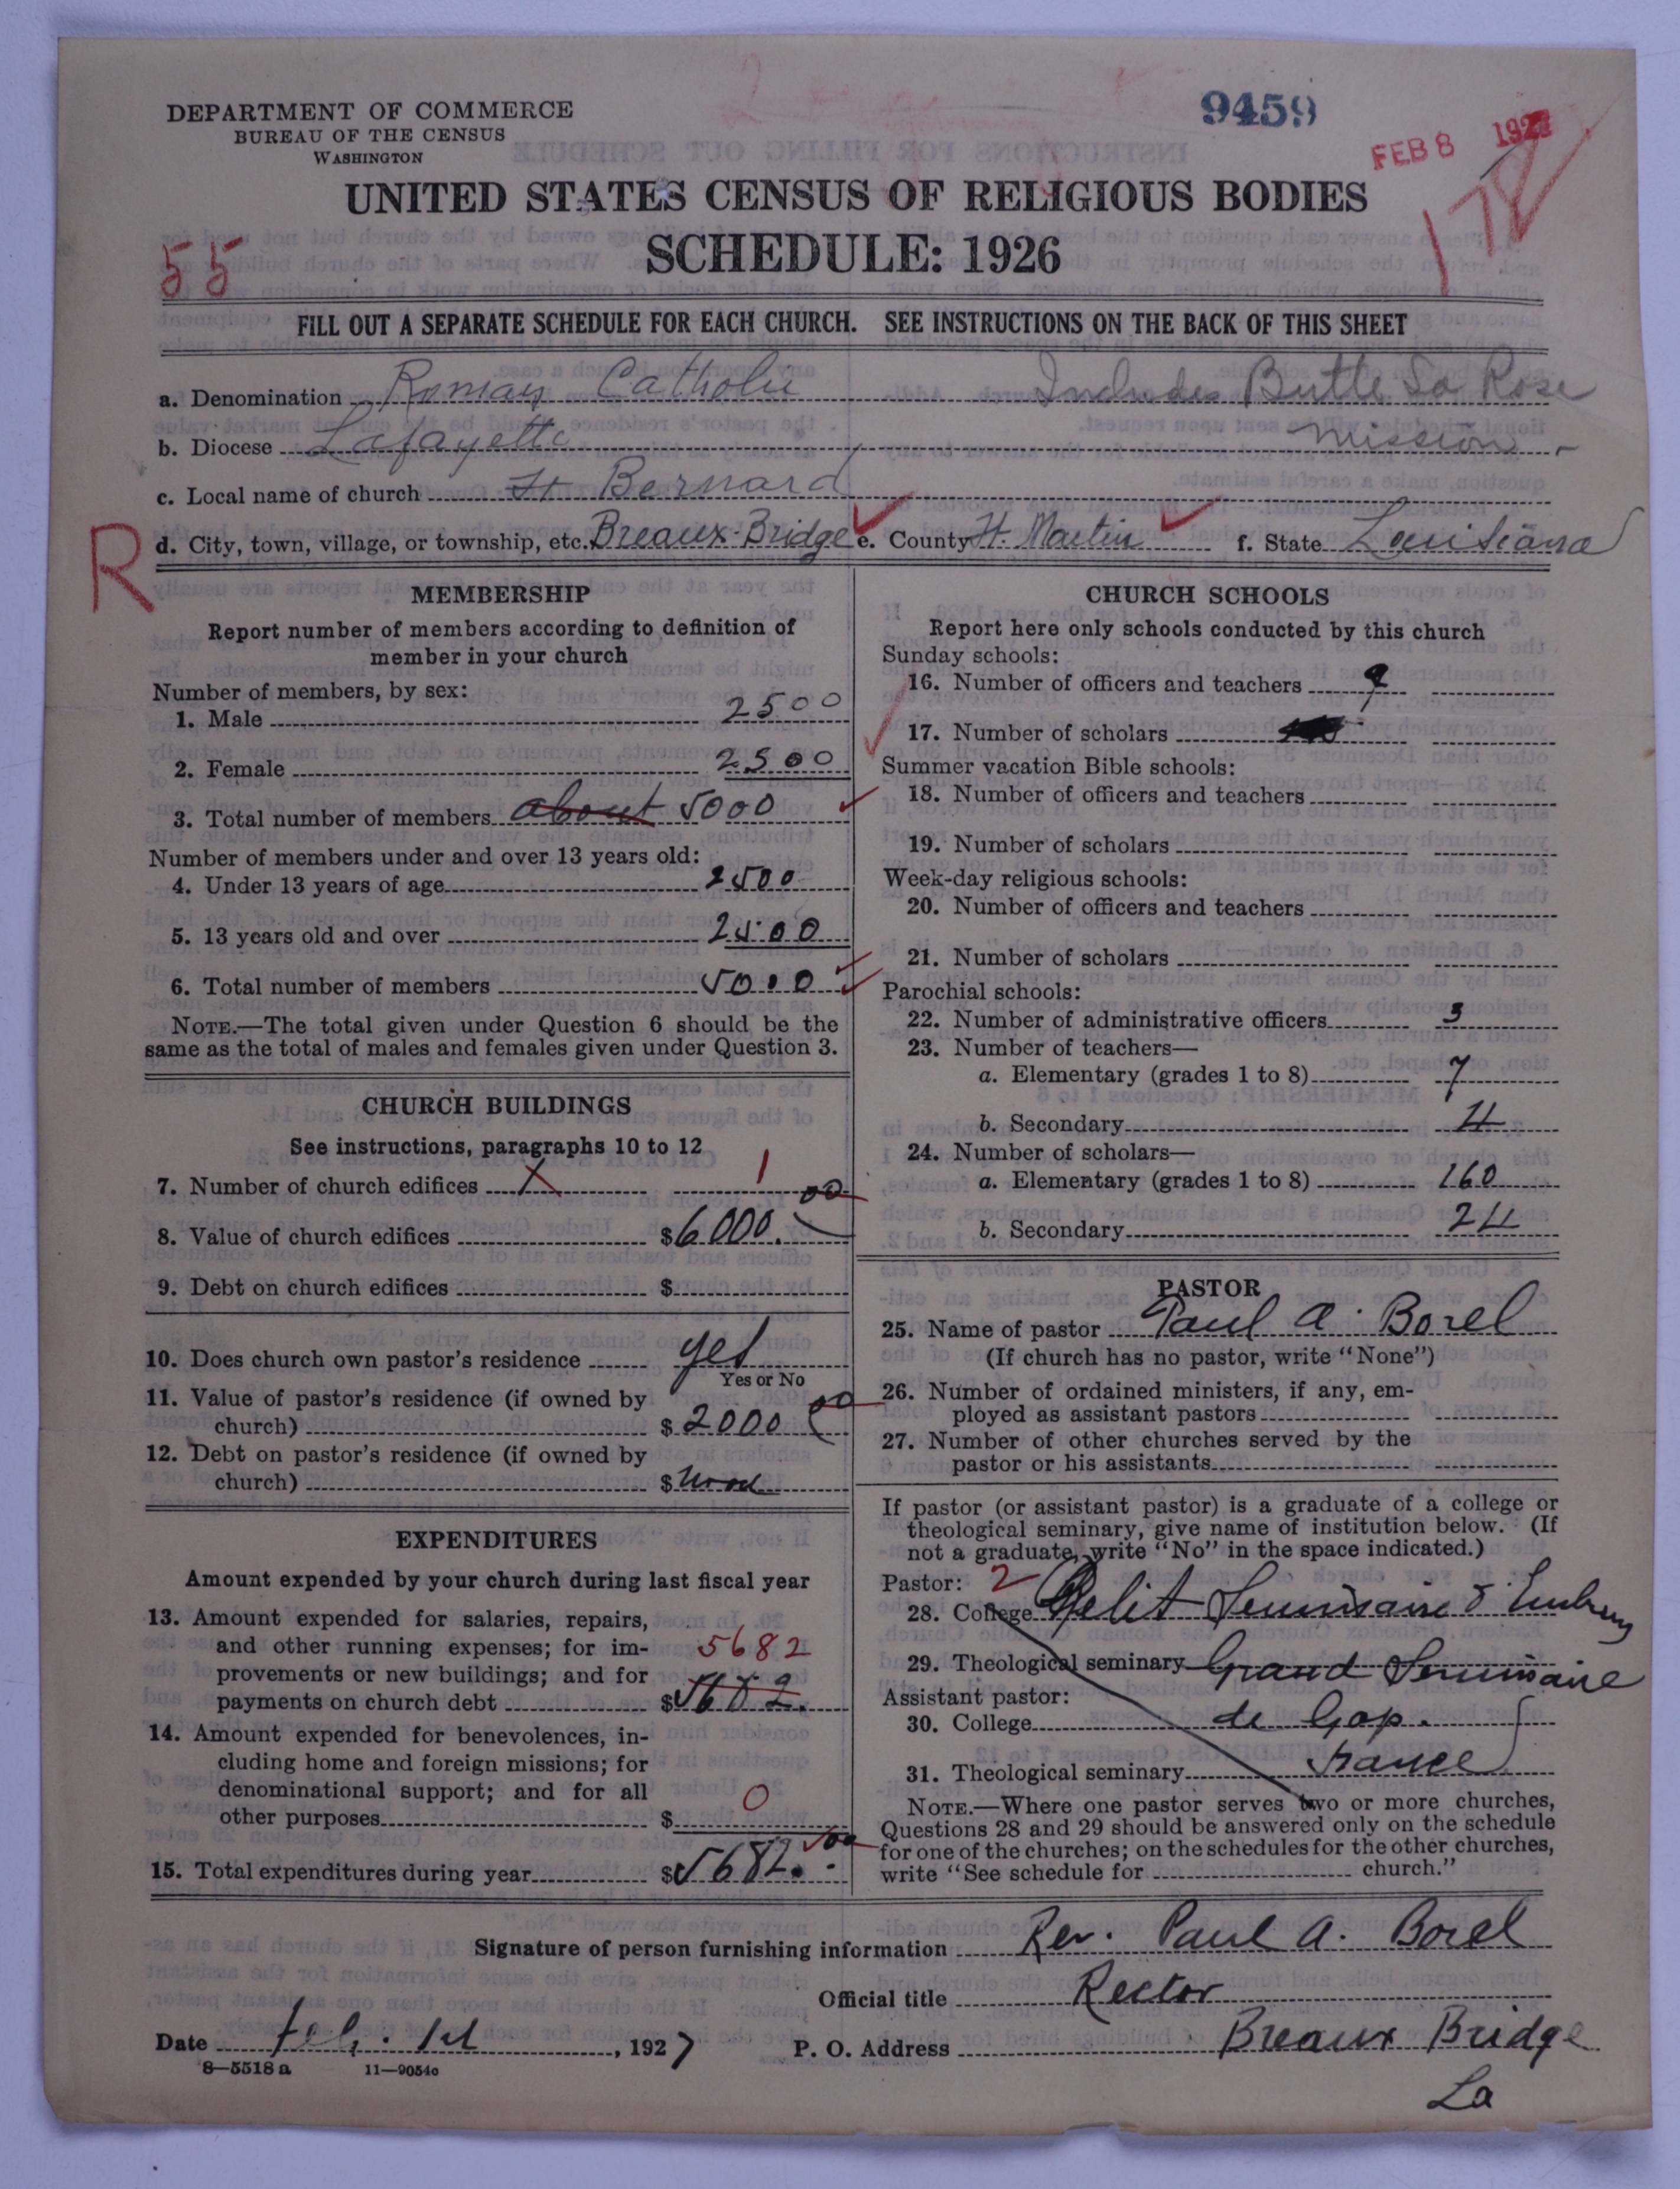 DEPARTMENT OF COMMERCE
BUREAU OF THE CENSUS
WASHINGTON
9459
FEB 8 192
178
UNITED STATES CENSUS OF RELIGIOUS BODIES
SCHEDULE: 1926
55
FILL OUT A SEPARATE SCHEDULE FOR EACH CHURCH. SEE INSTRUCTIONS ON THE BACK OF THIS SHEET
a. Denomination Roman Catholic Includes Butte La Rose
b. Diocese Lafayette Mission
c. Local name of church St Bernard
R
d. City, town, village, or township, etc. Breaux Bridge e. County St. Martin f. State Louisiana
MEMBERSHIP
Report number of members according to definition of
member in your church
Number of members, by sex:
1. Male 2500
2. Female 2500
3. Total number of members about 5000
Number of members under and over 13 years old:
4. Under 13 years of age 2500
5. 13 years old and over 2500
6. Total number of members 5000
NOTE.—The total given under Question 6 should be the
same as the total of males and females given under Question 3.
CHURCH BUILDINGS
See instructions, paragraphs 10 to 12
7. Number of church edifices 1 1
8. Value of church edifices $6000.00
9. Debt on church edifices $
10. Does church own pastor's residence yes
Yes or No
11. Value of pastor's residence (if owned by
church) $2000 00
12. Debt on pastor's residence (if owned by
church) $
EXPENDITURES
Amount expended by your church during last fiscal year
13. Amount expended for salaries, repairs,
and other running expenses; for im-
provements or new buildings; and for
payments on church debt $5682. 5682
14. Amount expended for benevolences, in-
cluding home and foreign missions; for
denominational support; and for all
other purposes $ 0
15. Total expenditures during year $5682.00
CHURCH SCHOOLS
Report here only schools conducted by this church
Sunday schools:
16. Number of officers and teachers 9
17. Number of scholars
Summer vacation Bible schools:
18. Number of officers and teachers
19. Number of scholars
Week-day religious schools:
20. Number of officers and teachers
21. Number of scholars
Parochial schools:
22. Number of administrative officers 3
23. Number of teachers—
a. Elementary (grades 1 to 8) 7
b. Secondary 4
24. Number of scholars—
a. Elementary (grades 1 to 8) 160
b. Secondary 24
PASTOR
25. Name of pastor Paul A. Borel
(If church has no pastor, write "None")
26. Number of ordained ministers, if any, em-
ployed as assistant pastors
27. Number of other churches served by the
pastor or his assistants
If pastor (or assistant pastor) is a graduate of a college or
theological seminary, give name of institution below. (If
not a graduate, write "No" in the space indicated.)
Pastor: 2
28. College Petit Seminaire d'Embrun
29. Theological seminary Grand Seminaire
Assistant pastor:
30. College de Gap.
31. Theological seminary France
NOTE.—Where one pastor serves two or more churches,
Questions 28 and 29 should be answered only on the schedule
for one of the churches; on the schedules for the other churches,
write "See schedule for church."
Signature of person furnishing information Rev. Paul A. Borel
Official title Rector
Date Feb. 1st, 1927 P. O. Address Breaux Bridge
La
8—5518 a 11—9054c